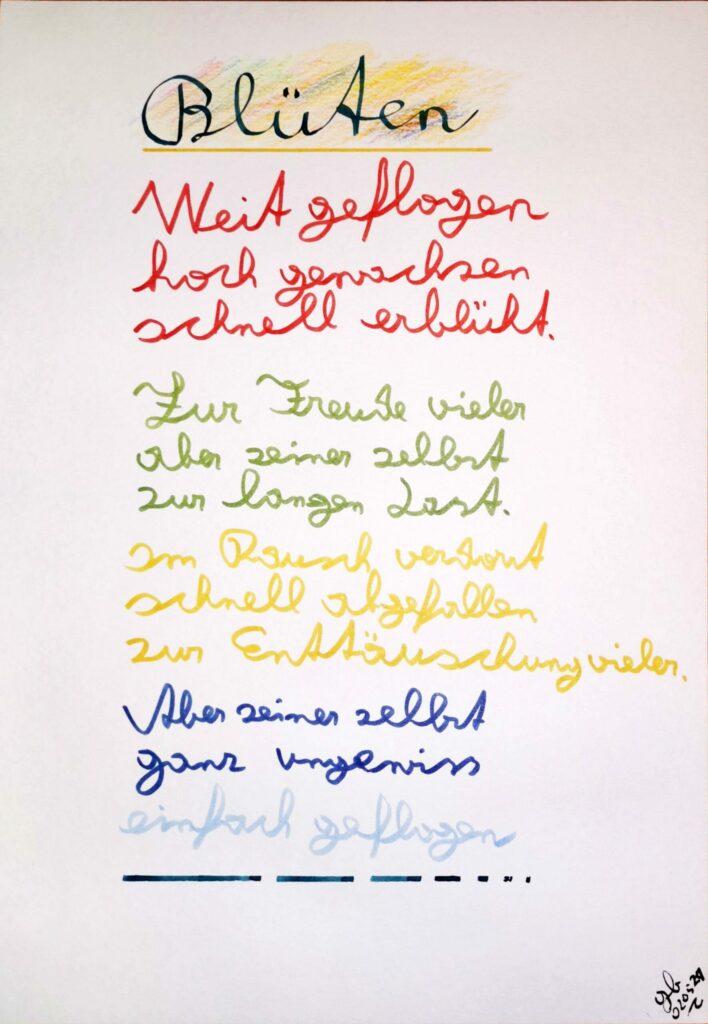 Blüten
Weit geflogen
hoch gewachsen
schnell erblüht.
Zur Freude vieler
aber seiner selbst
zur langen Last.
im Rausch verdorrt
schnell abgefallen
zur Enttäuschung vieler.
Aber seiner selbst
ganz ungewiss
einfach geflogen